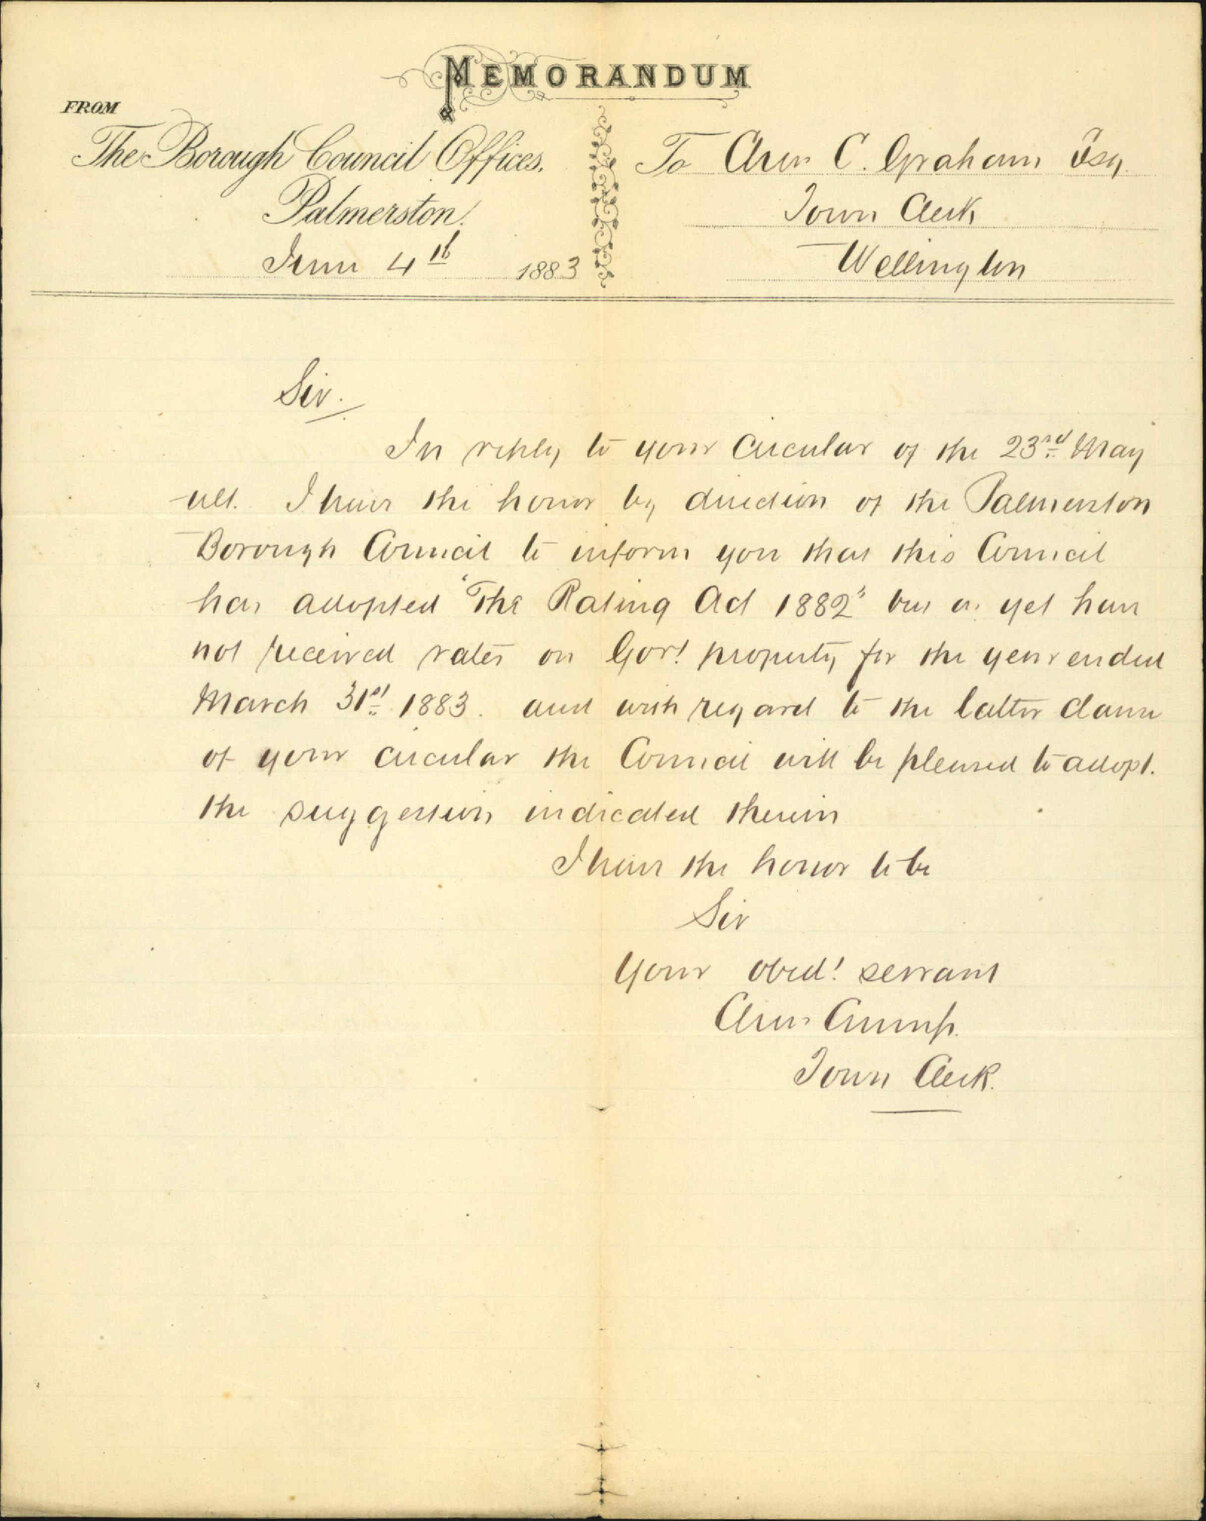 MEMORANDUM
FROM
The Borough Council Offices.
Palmerston.
June 4th 1883
To Chas C. Graham Esq
Town Clerk
Wellington
Sir.
In reply to your circular of the 23rd May
ult. I have the honor by direction of the Palmerston
Borough Council to inform you that this Council
has adopted "The Rating Act 1882" but as yet have
not received rates on Govt property for the year ended
March 31st 1883. and with regard to the latter clause
of your circular the Council will be pleased to adopt.
the suggestion indicated therein
I have the honor to be
Sir
Your obedt servant
Crump.
Town Clerk.